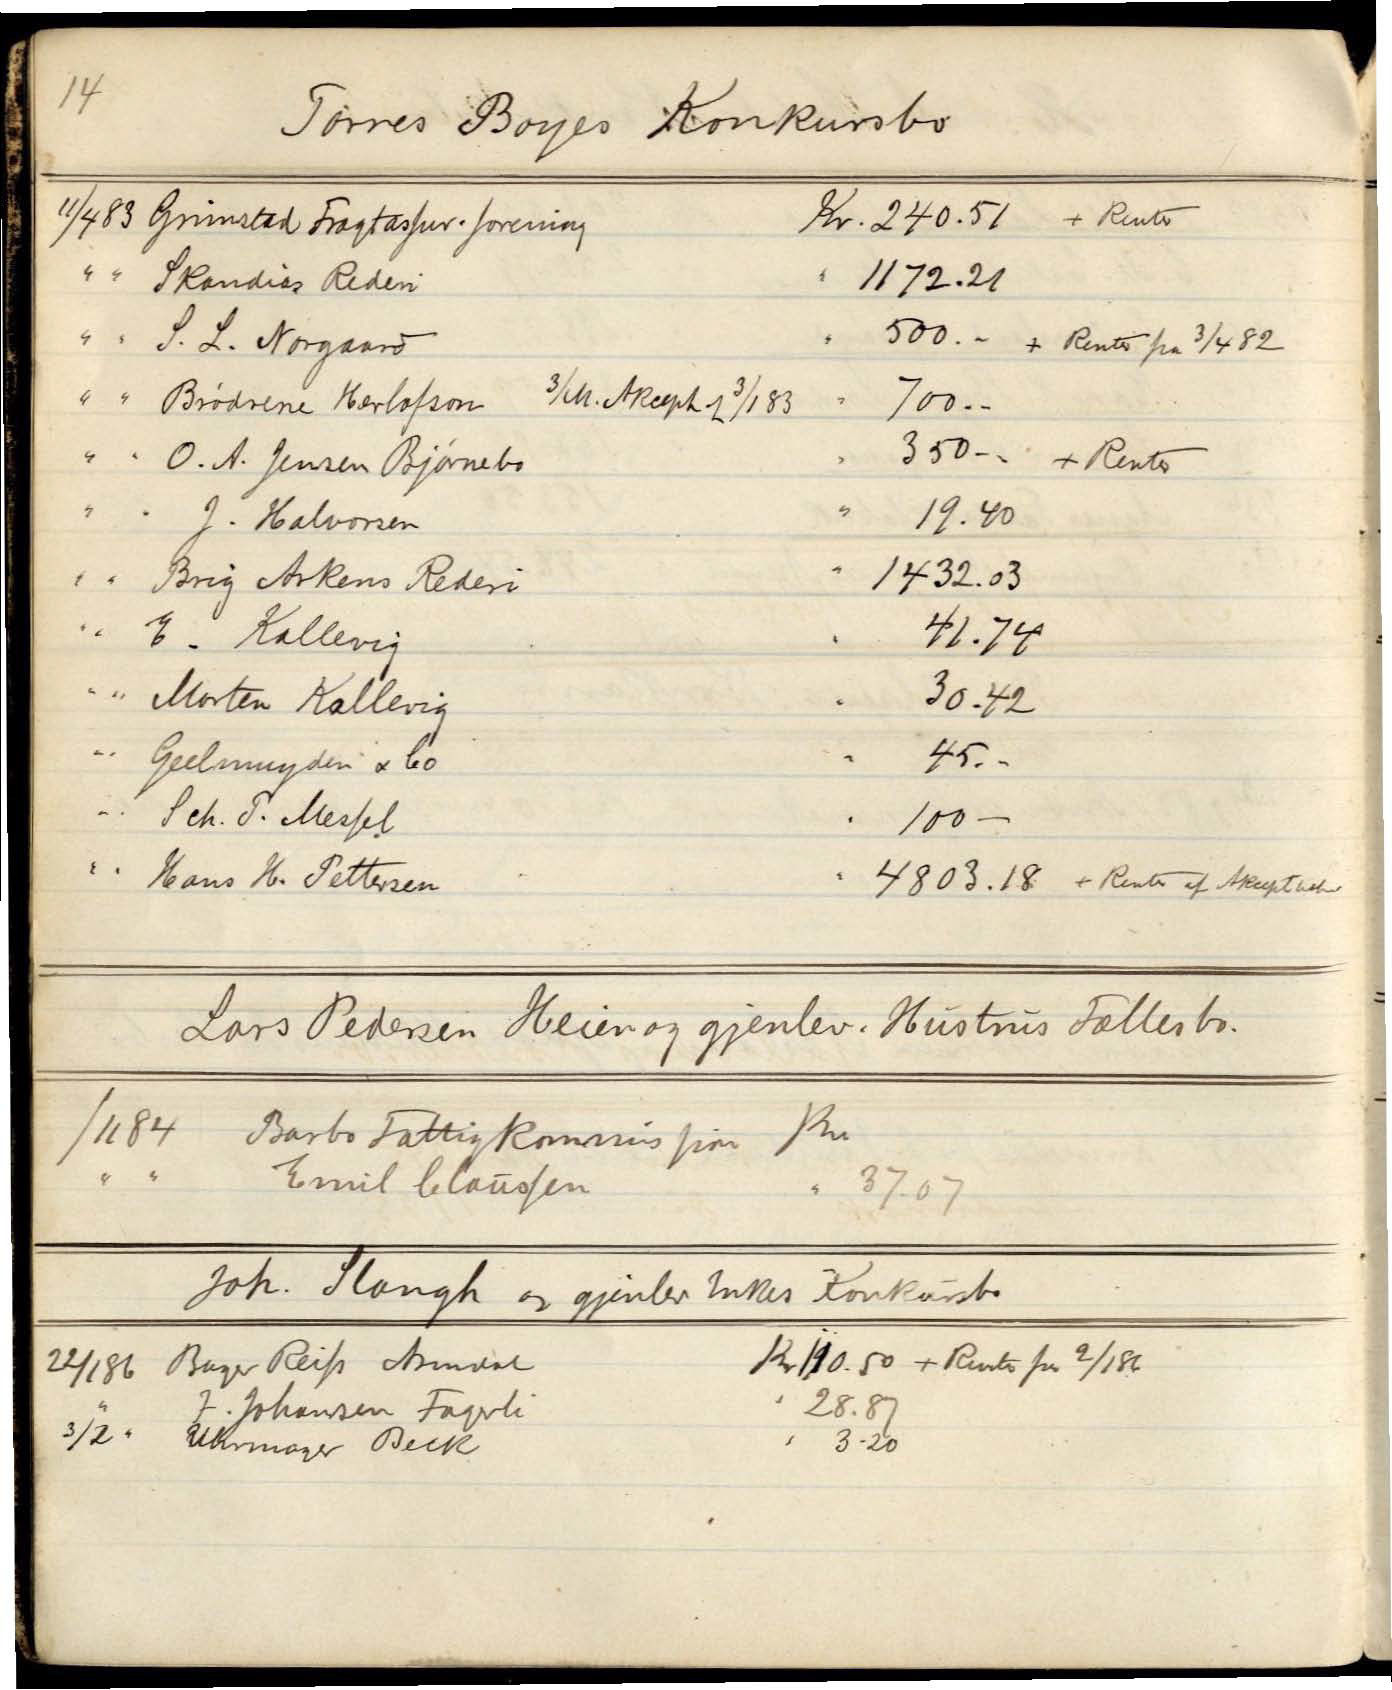 14
Torres Boyes Konkursbo
11/4 83 Grimstad Fragtassur. forening Kr. 240.51 + Renter
" " Skandias Rederi " 1172.21
" " S. L. Norgaard " 500.- + Renter fra 3/4 82
" " Brødrene Herlofson 3/M. Akcept af 3/1 83 " 700.-
" " O. A. Jensen Bjørnebo " 350.- + Renter
" " J. Halvorsen " 19.40
" " Brig Arkens Rederi " 1432.03
" " E. Kallevig " 41.74
" " Morten Kallevig " 30.42
" " Geelmuyden & Co " 45.-
" " Sch. T. Messel " 100 -
" " Hans H. Pettersen " 4803.18 + Renter af Akcept
Lars Pedersen Heier og gjenlev. Hustrus Fællesbo.
/11 84 Barbo Fattigkommission Kr
" " Emil Claussen " 37.07
Joh. Slongh og gjenlev Enkes Konkursbo
22/1 86 Bager Reiss Arendal Kr 110.50 + Renter fra 2/1 86
" J. Johansen Fagerli " 28.87
3/2 " Uhrmager Beck " 3.20